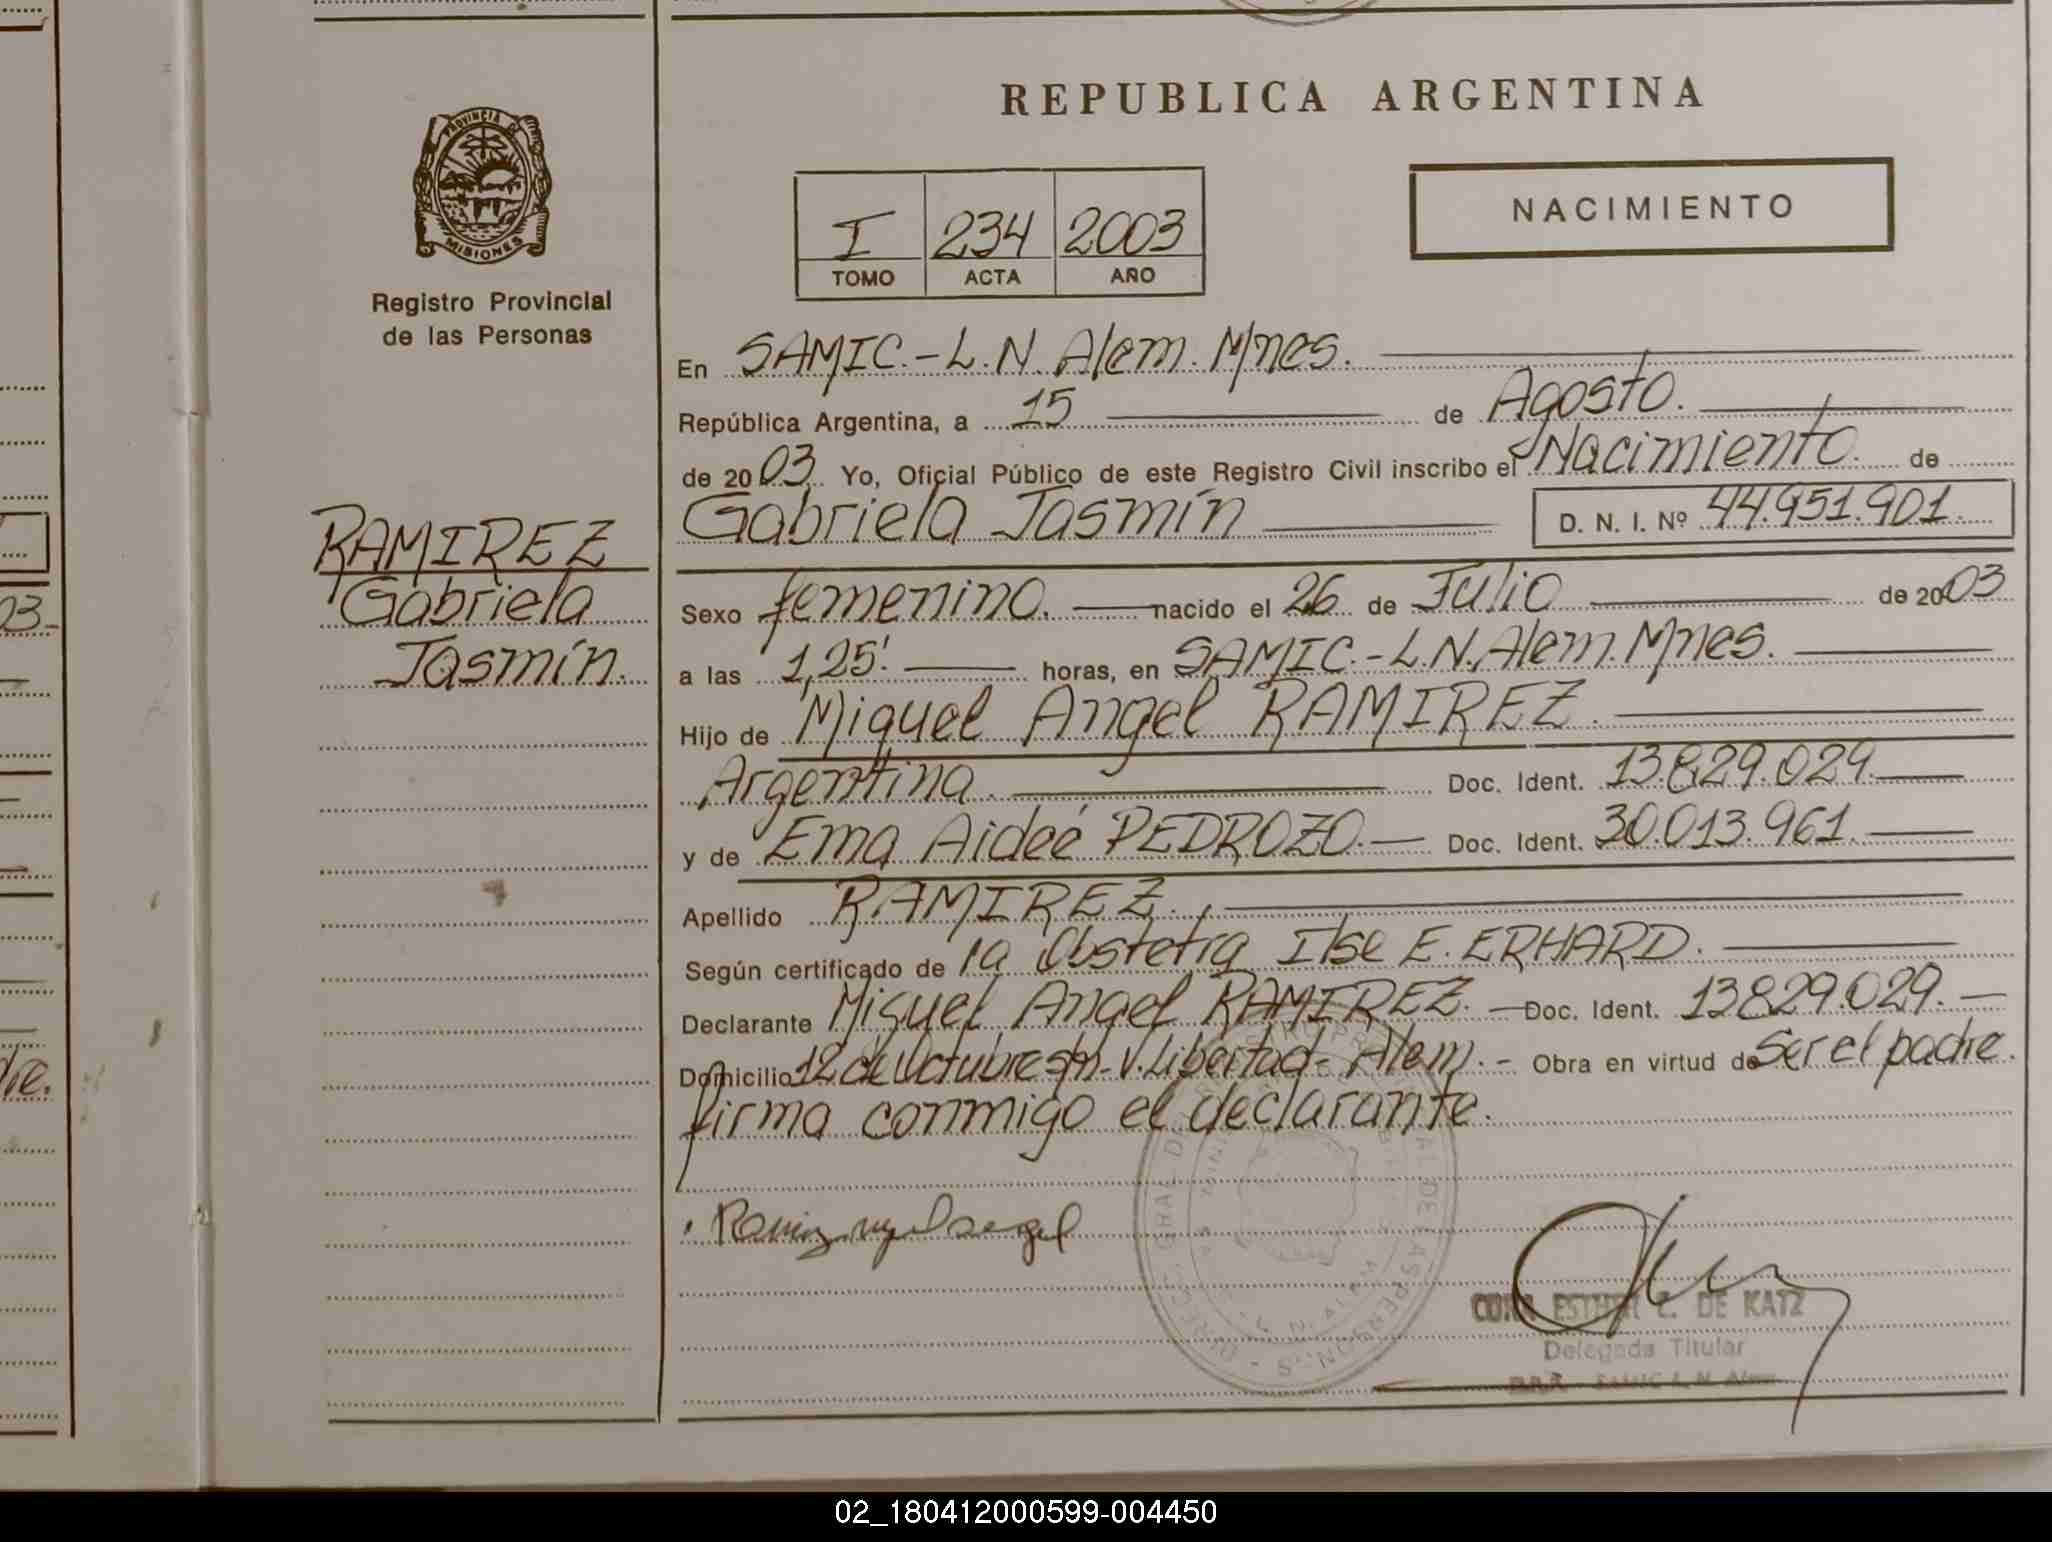 REPUBLICA ARGENTINA
PROVINCIA DE
MISIONES
Registro Provincial
de las Personas
I 234 2003
TOMO ACTA AÑO
NACIMIENTO
En SAMIC.-L.N.Alem.Mnes.
República Argentina, a 15 de Agosto.
de 2003 Yo, Oficial Público de este Registro Civil inscribo el Nacimiento de
Gabriela Jasmín D. N. I. Nº 44.951.901.
RAMIREZ
Gabriela
Jasmín.
Sexo femenino. nacido el 26 de Julio de 2003
a las 1,25'. horas, en SAMIC.-L.N.Alem.Mnes.
Hijo de Miguel Angel RAMIREZ.
Argentina. Doc. Ident. 13.829.029.
y de Ema Aideé PEDROZO.- Doc. Ident. 30.013.961.
Apellido RAMIREZ.
Según certificado de la Obstetra Ilse E. ERHARD.
Declarante Miguel Angel RAMIREZ. Doc. Ident. 13829.029.
Domicilio 12 de Octubre s/n-V.Libertad-Alem.- Obra en virtud de Ser el padre.
firma conmigo el declarante.
CORA ESTHER E. DE KATZ
Delegada Titular
SAMIC L. N. Alem
03
dre.
02_180412000599-004450